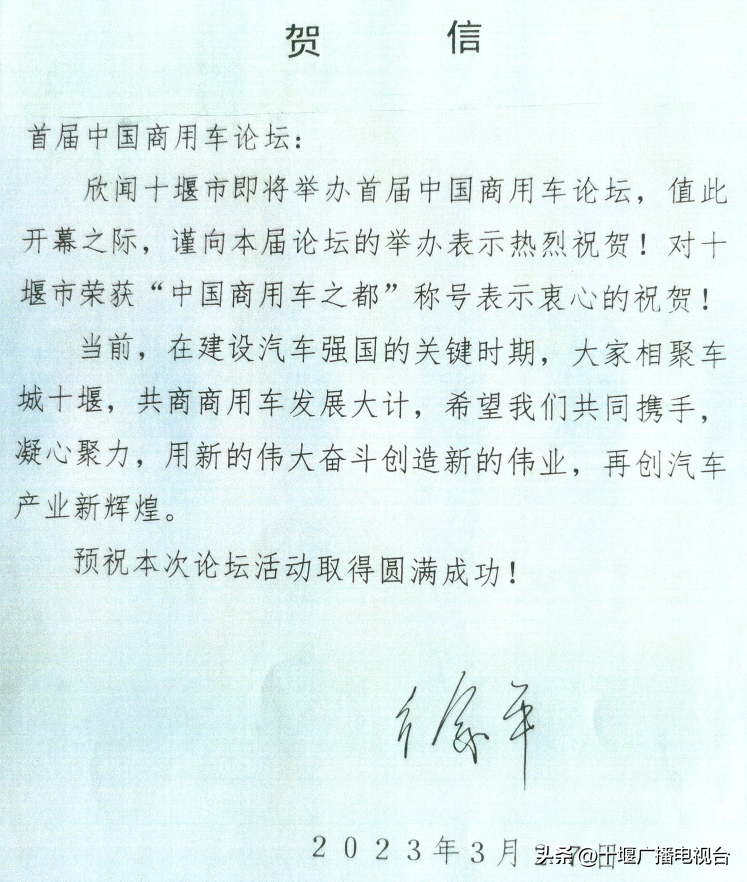 贺 信
首届中国商用车论坛：
欣闻十堰市即将举办首届中国商用车论坛，值此
开幕之际，谨向本届论坛的举办表示热烈祝贺！对十
堰市荣获“中国商用车之都”称号表示衷心的祝贺！
当前，在建设汽车强国的关键时期，大家相聚车
城十堰，共商商用车发展大计，希望我们共同携手，
凝心聚力，用新的伟大奋斗创造新的伟业，再创汽车
产业新辉煌。
预祝本次论坛活动取得圆满成功！
徐平
2023年3月 日
头条@十堰广播电视台